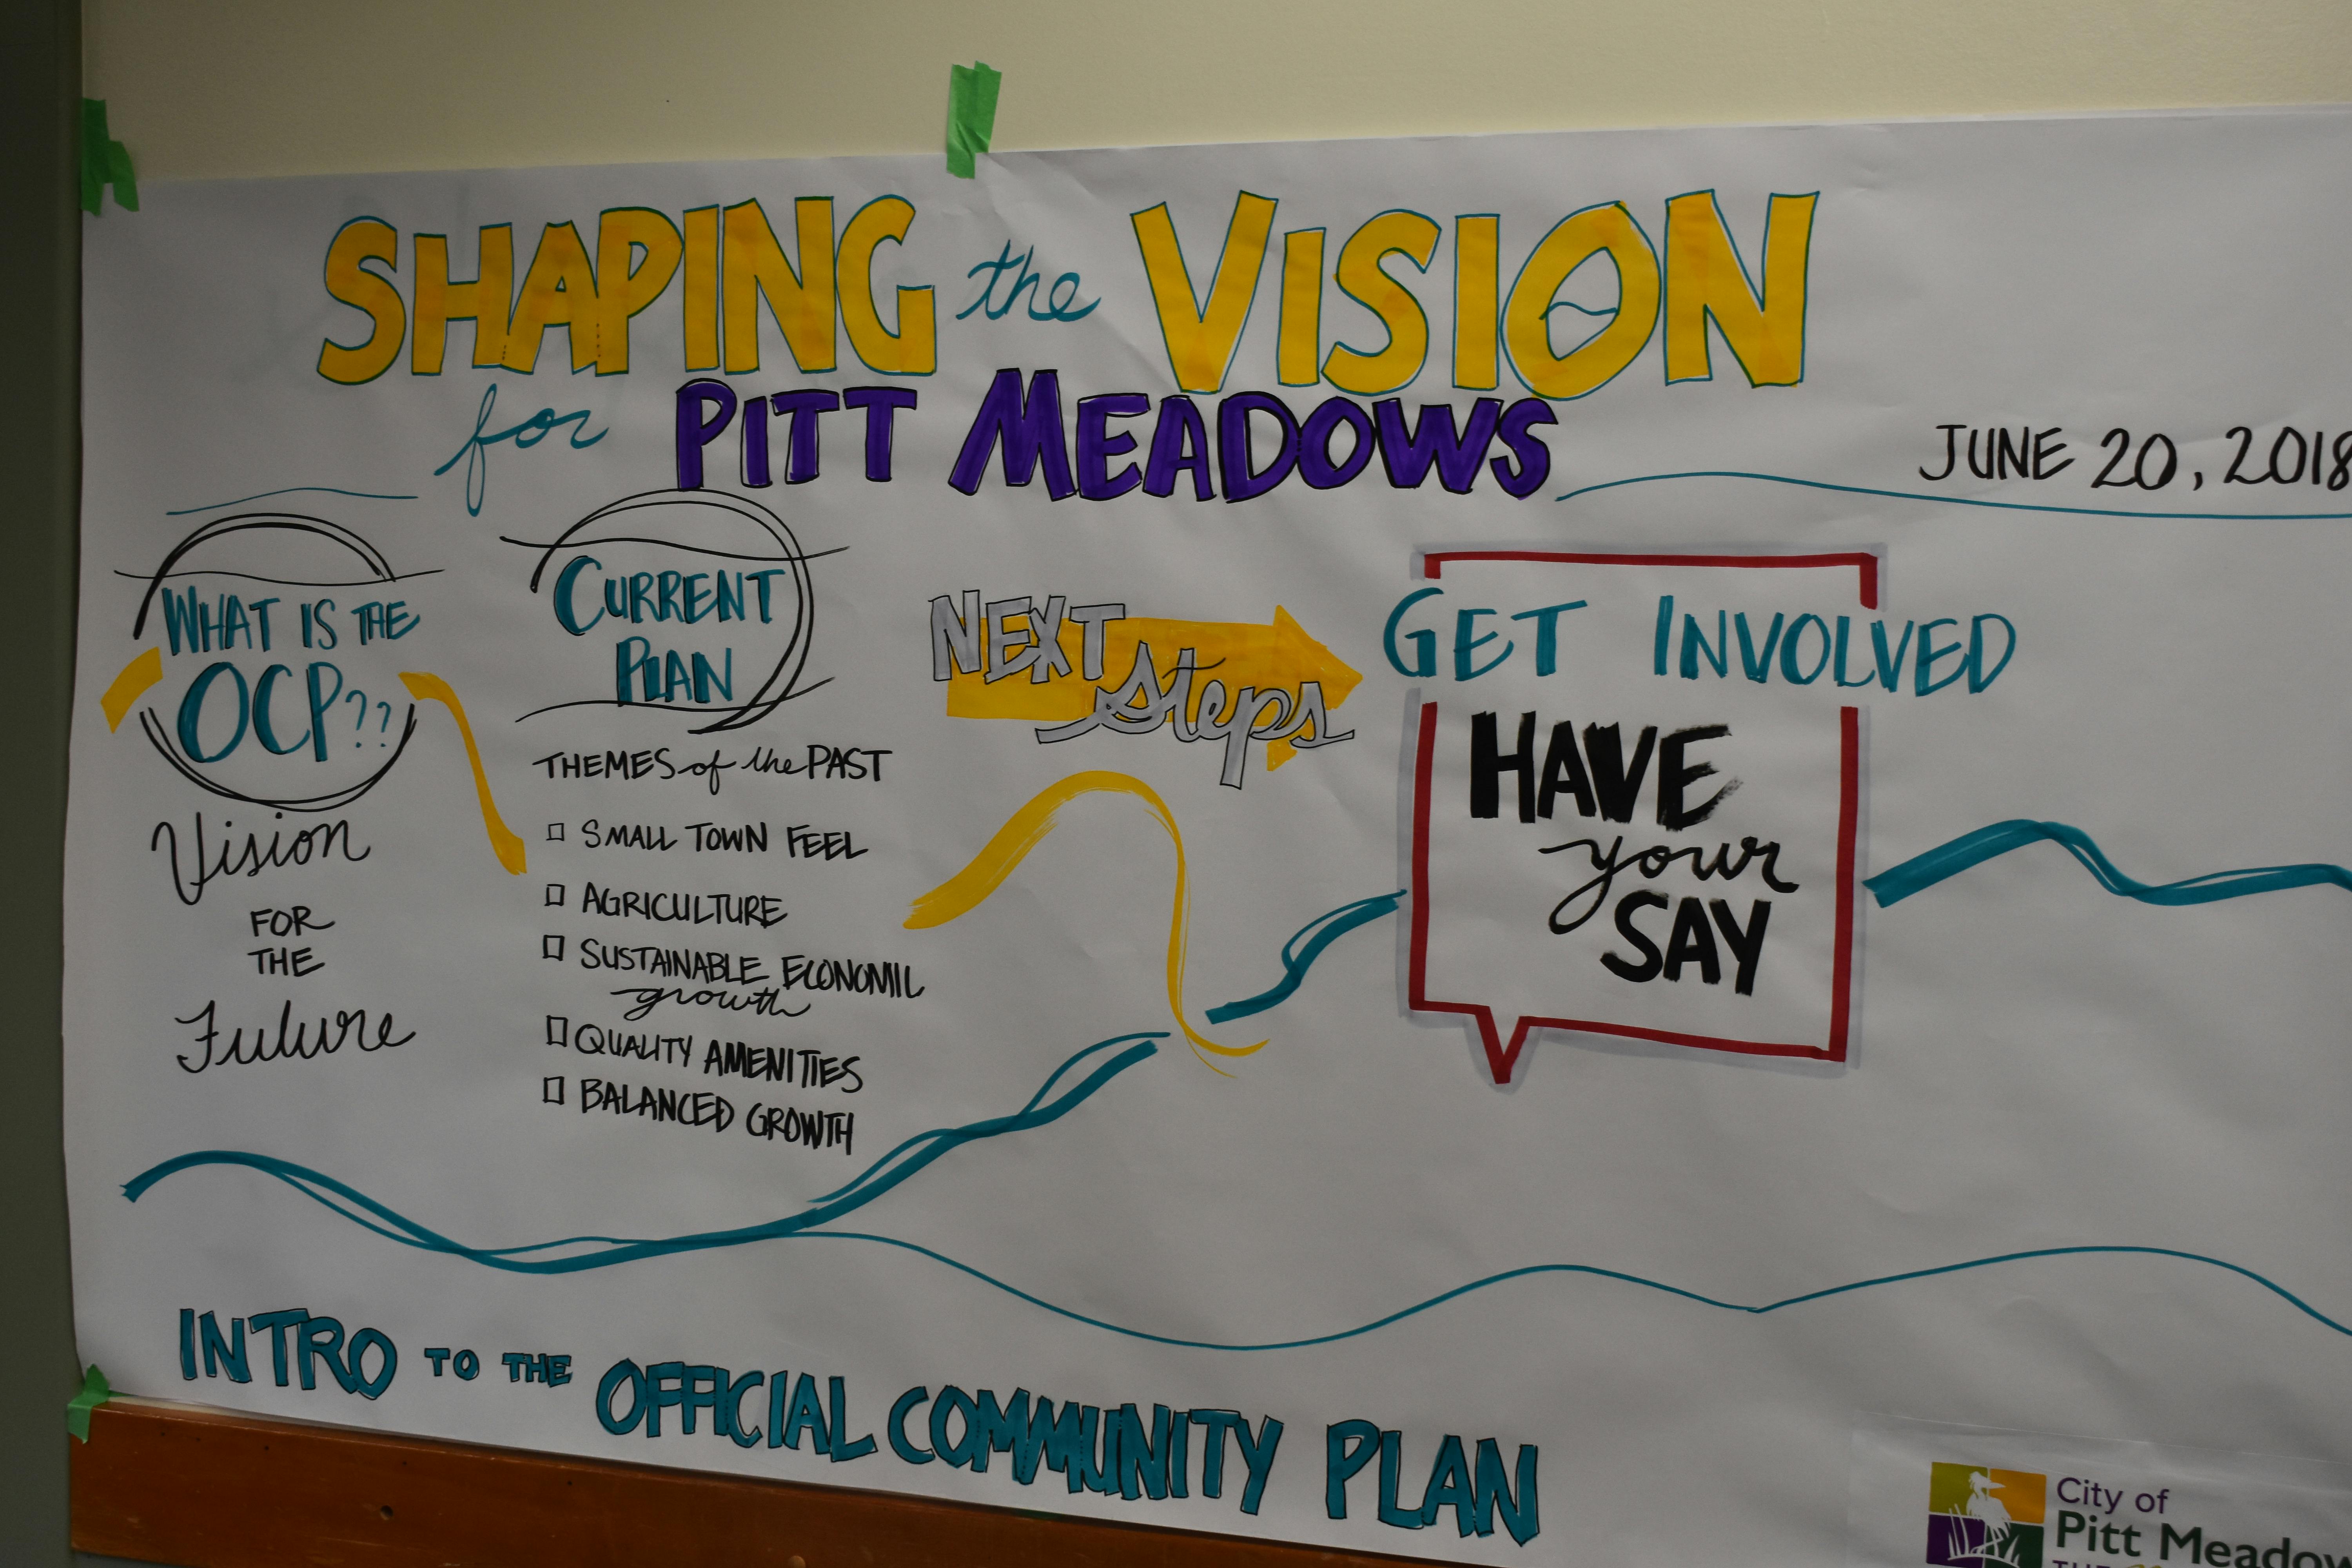 SHAPING the VISION
for PITT MEADOWS
JUNE 20, 2018
WHAT IS THE
OCP??
Vision
FOR
THE
Future
CURRENT
PLAN
THEMES of the PAST
SMALL TOWN FEEL
AGRICULTURE
SUSTAINABLE ECONOMIC
growth
QUALITY AMENITIES
BALANCED GROWTH
NEXT
Steps
GET INVOLVED
HAVE
your
SAY
INTRO TO THE OFFICIAL COMMUNITY PLAN
City of
Pitt Meadow
THE